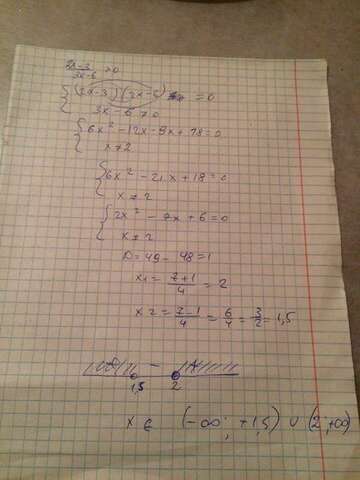 (2x-3)/(3x-6) > 0
{ (2x-3)(3x-6) = 0
3x-6 ≠ 0
{ 6x² - 12x - 9x + 18 = 0
x ≠ 2
{ 6x² - 21x + 18 = 0
x ≠ 2
{ 2x² - 7x + 6 = 0
x ≠ 2
D = 49 - 48 = 1
x1 = (7+1)/4 = 2
x2 = (7-1)/4 = 6/4 = 3/2 = 1,5
+ - +
1,5 2
x ∈ (-∞; +1,5) ∪ (2; +∞)